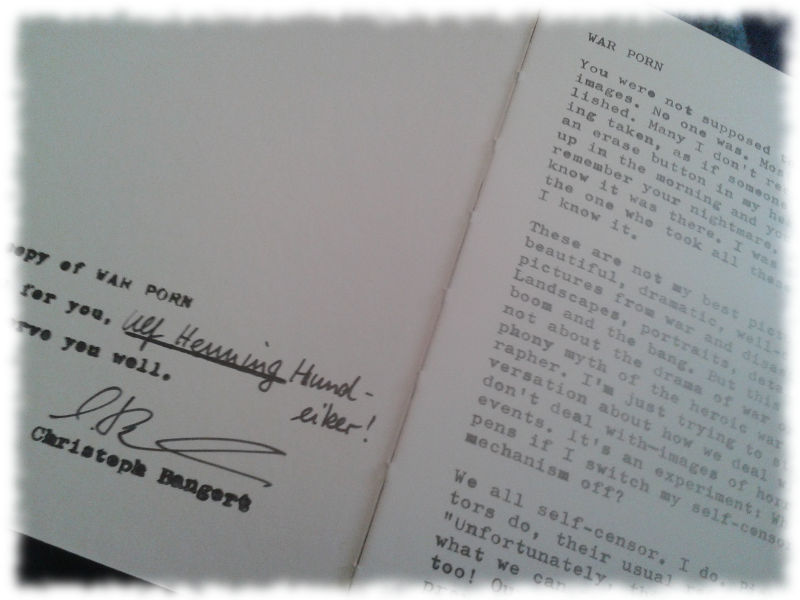 opy of WAR PORN
for you, Ulf Henning Hund-
eiker!
rve you well.
Christoph Bangert
WAR PORN
You were not supposed t
images. No one was. Mos
lished. Many I don't re
ing taken, as if someone
an erase button in my he
up in the morning and yo
remember your nightmare,
know it was there. I was
the one who took all thes
I know it.
These are not my best pic
beautiful, dramatic, well-
pictures from war and disas
Landscapes, portraits, deta
boom and the bang. But this
not about the drama of war o
phony myth of the heroic war
rapher. I'm just trying to st
versation about how we deal w
don't deal with—images of horr
events. It's an experiment: Wh
pens if I switch my self-censo
mechanism off?
We all self-censor. I do, pi
tors do, their usual re
"Unfortunately, th
what we can
too! Ou